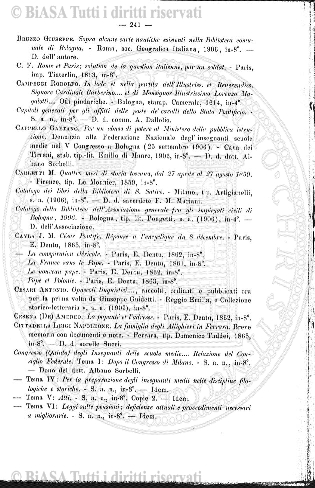 © BiASA Tutti i diritti riservati
— 241 —
BRUZZO GIUSEPPE. Sopra alcune carte nautiche esistenti nella Biblioteca comunale di Bologna. - Roma, soc. Geografica Italiana, 1906, in-8°. —
D. dell'autore.
C. V. Rome et Paris; solution de la question italienne, par un soldat. - Paris,
imp. Tinterlin, 1813, in-8°.
CAMPEGGI RODOLFO. In lode et nella partita dell'Illustriss. et Reverendiss.
Signore Cardinale Barberino.... et di Monsignor Illustrissimo Lorenzo Magalotti... Odi pindariche. - Bologna, stamp. Camerale, 1614, in-4°.
Capitoli generali per gli affitti delle poste de' cavalli dello Stato Pontificio. -
S. a. n., in-8°. — D. il comm. A. Dallolio.
CAPPELLO GAETANO. Per un elenco di potere al Ministero della pubblica istruzione. Denunzia alla Federazione Nazionale degl'insegnanti di scuole
medie nel V Congresso a Bologna (25 settembre 1906). - Cava dei
Tirreni, stab. tip.-lit. Emilio di Mauro, 1902, in-8°. — D. il dott. Albano Sorbelli.
CARLETTI M. Quattro mesi di storia toscana, dal 27 aprile al 27 agosto 1859.
- Firenze, tip. Le Monnier, 1859, in-8°.
Catalogo dei libri della Biblioteca di S. Satiro. - Milano, tip. Artigianelli,
s. a. (1906), in-8°. — D. il sacerdote F. M. Maciani.
Catalogo della Biblioteca dell'Associazione generale fra gli impiegati civili di
Bologna, 1906. - Bologna, tip. E. Pongetti, s. a. (1906), in-4°. —
D. dell'Associazione.
E. Dentu, 1865, in-8°.
— La comparution cléricale. - Paris, E. Dentu, 1862, in-8°.
— La France sans le Pape. - Paris, E. Dentu, 1861, in-8°.
— Le nouveau pape. - Paris, E. Dentu, 1862, in-8°.
— Pape et Pologne. - Paris, E. Dentu, 1863, in-8°.
CESARI ANTONIO. Opuscoli linguistici..., raccolti, ordinati e pubblicati ora
per la prima volta da Giuseppe Guidetti. - Reggio Emilia, a Collezione
storico-letteraria », s. a. (1906), in-8°.
CESENA (DE) AMÉDÉE. La papauté et l'adresse. - Paris, E. Dentu, 1862, in-8°.
CITTADELLA LUIGI NAPOLEONE. La famiglia degli Allighieri in Ferrara. Breve
memoria con documenti e note. - Ferrara, tip. Domenico Taddei, 1865,
in-8°. — D. d. sorelle Succi.
Congresso (Quinto) degli Insegnanti delle scuole medie.... Relazione del Consiglio Federale. Tema I: Dopo il Congresso di Milano. - S. a. n., in-8°.
— Dono del dott. Albano Sorbelli.
— TEMA IV: Per la preparazione degli insegnanti medi nelle discipline filologiche e storiche. - S. a. n., in-8°. — Idem.
— TEMA V: Atti. - S. a. n., in-8°. Copie 2. — Idem.
— TEMA VI: Leggi sulle pensioni; deficienze attuali e procedimenti necessari
a migliorarle. - S. a. n., in-8°. — Idem.
© BiASA Tutti i diritti riservati